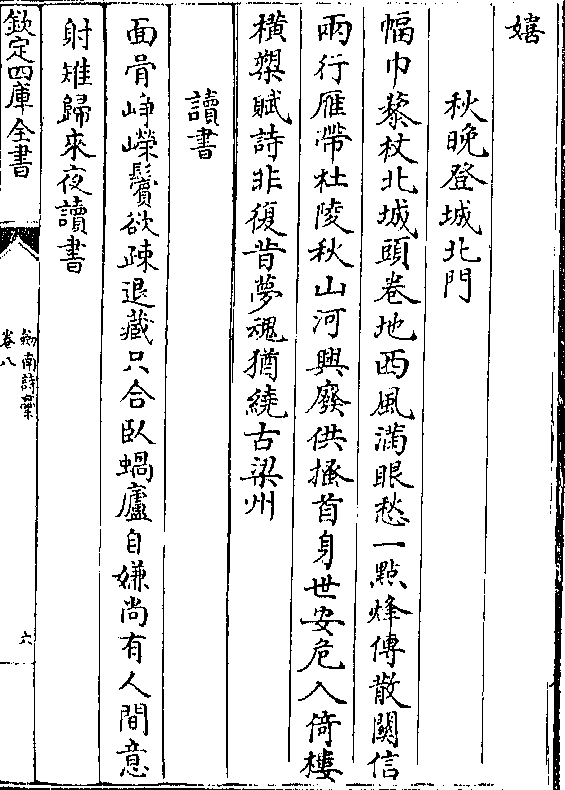 嬉
秋晚登城北門
幅巾藜杖北城頭卷地西風滿眼愁一點烽傳散關信
兩行雁帶杜陵秋山河興廢供搔首身世安危入倚樓
橫槊賦詩非復昔夢魂猶繞古梁州
讀書
面骨崢嶸鬢欲疎退藏只合臥蝸廬自嫌尚有人間意
射雉歸來夜讀書
欽定四庫全書
劒南詩藁
卷八
六